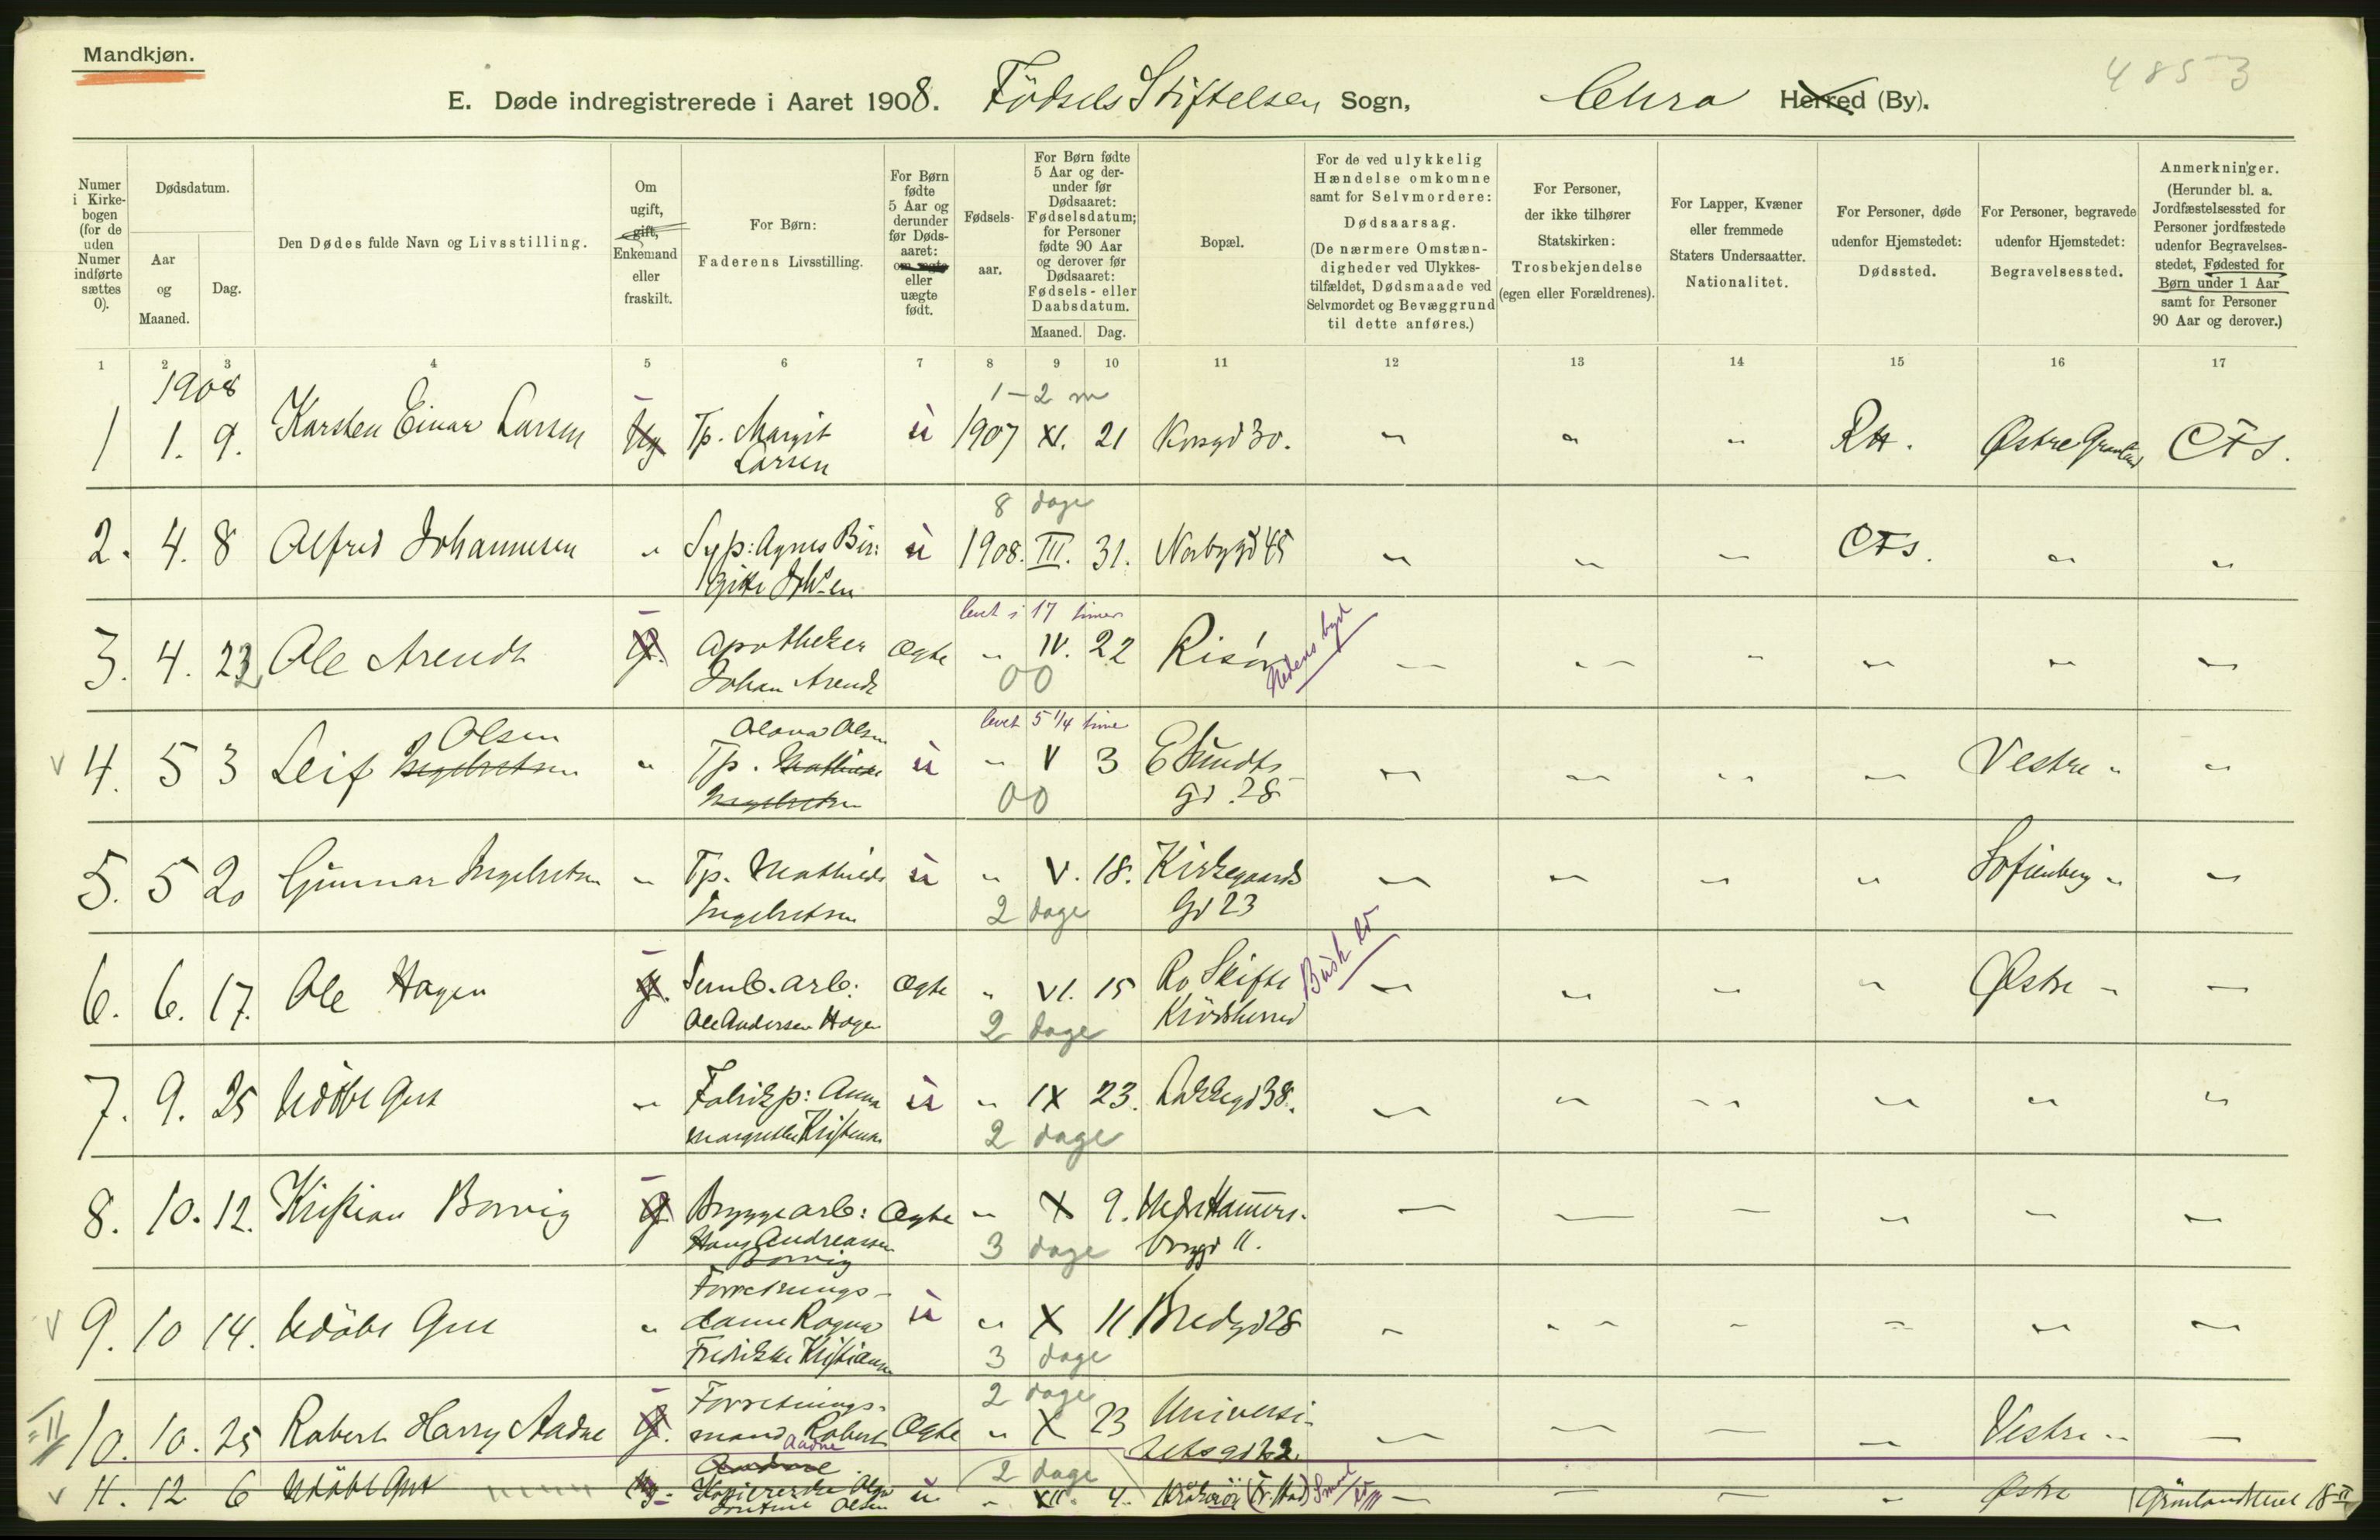 Mandkjøn.
4853
E. Døde indregistrerede i Aaret 1908. Fødsels Stiftelsen Sogn, Chra Herred (By).
Numer i Kirkebogen (for de uden Numer indførte sættes 0).
Dødsdatum.
Aar og Maaned.
Dag.
Den Dødes fulde Navn og Livsstilling.
Om ugift, gift, Enkemand eller fraskilt.
For Børn: Faderens Livsstilling.
For Børn fødte 5 Aar og derunder før Dødsaaret: om ægte eller uægte født.
Fødselsaar.
For Børn fødte 5 Aar og derunder før Dødsaaret: Fødselsdatum; for Personer fødte 90 Aar og derover før Dødsaaret: Fødsels- eller Daabsdatum.
Maaned. Dag.
Bopæl.
For de ved ulykkelig Hændelse omkomne samt for Selvmordere: Dødsaarsag. (De nærmere Omstændigheder ved Ulykkestilfældet, Dødsmaade ved Selvmordet og Bevæggrund til dette anføres.)
For Personer, der ikke tilhører Statskirken: Trosbekjendelse (egen eller Forældrenes).
For Lapper, Kvæner eller fremmede Staters Undersaatter. Nationalitet.
For Personer, døde udenfor Hjemstedet: Dødssted.
For Personer, begravede udenfor Hjemstedet: Begravelsessted.
Anmerkninger. (Herunder bl. a. Jordfæstelsessted for Personer jordfæstede udenfor Begravelsesstedet, Fødested for Børn under 1 Aar samt for Personer 90 Aar og derover.)
1 2 3 4 5 6 7 8 9 10 11 12 13 14 15 16 17
1908
1-2 m
1 1. 9. Karsten Einar Larsen Ug Tp. Margit Larsen u 1907 XI. 21 Korsgd 30. " " " RH. Østre CFS.
8 dage
2. 4. 8 Alfred Johannesen " Syp: Agnes Birgitte u 1908. III. 31. Norbygd 45 " " " CFS. " "
levet i 17 timer
3. 4. 23 Ole Arendt g. Apotheker Johan Arendt Ægte " IV. 22 Risør " " " " " "
00
levet 5 1/4 time
4. 5 3 Leif Ingebretsen Olsen " Tp. Mathilde Ingebretsen Olsen u " V 3 E Sundts gd. 28 " " " " Vestre " "
00
5. 5 20 Gunnar Ingebretsen " Tp. Mathilde Ingebretsen u " V. 18. Kirkegaards Gd 23 " " " " Sofienberg " "
2 dage
6. 6. 17. Ole Hagen g. arb: Ole Andersen Hagen Ægte " VI. 15 Krödsherred " " " " Østre " "
2 dage
7. 9. 25 Udøbt Gut " Fabrikp: Anna u " IX 23. Bakkegd 38. " " " " " "
2 dage
8. 10. 12. Kristian Borvig g Bryggearb: Hans Andreassen Borvig Ægte " X 9. Nedre Hammersborggd 11. " " " " " "
3 dage
9. 10 14. Udøbt Gut " Forretningsdame Ragna Fredrikke Kristiansen u " X 11 Bredgd 28 " " " " " "
3 dage
2 dage
10. 10. 25 Robert Harry Aadne g. Forretningsmand Robert Aadne Ægte " X 23 Universitetsgd 22. " " " " Vestre " "
2 dage
11. 12 6 Udøbt Gut Ug. Olga Olsen u " XII 4. Kråkerøy (Fr.stad) " " " " Østre